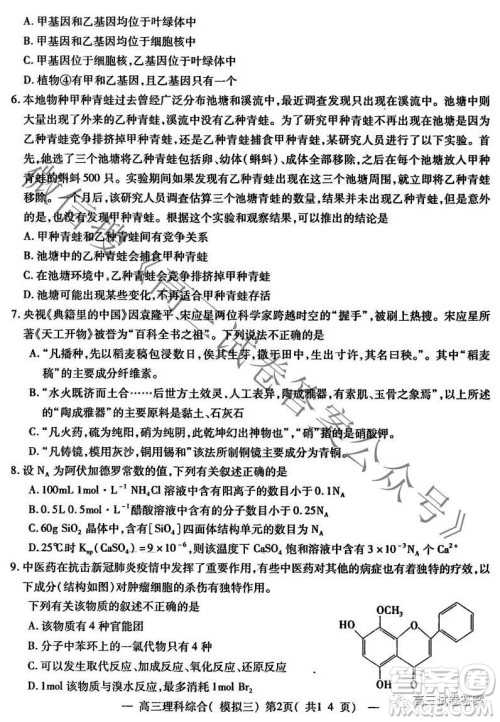 A. 甲基因和乙基因均位于叶绿体中
B. 甲基因和乙基因均位于细胞核中
C. 甲基因位于细胞核，乙基因位于叶绿体中
D. 植物④有甲和乙基因，且甲基因来自植物①
6. 本地物种甲种青蛙过去曾经广泛分布池塘和溪流中，最近调查发现只出现在溪流中。池塘中则
大量出现了外来的乙种青蛙。为了研究甲种青蛙不再出现在池塘中的原因，某研究人员提出是
乙种青蛙竞争排挤掉甲种青蛙，还是乙种青蛙捕食甲种青蛙有关的问题。该研究人员进行了以
下实验。首先，他选了三个池塘将乙种青蛙包括卵、幼体(蝌蚪)和成体全部移除，再引入甲种
青蛙的蝌蚪 500 只。实验期间如果发现有乙种青蛙迁移到池塘里，也必须将这些乙种青蛙
移除。一个月后，该研究人员调查估算三个池塘青蛙的数量，结果并未出现乙种青蛙，但在意外
的是，也没有出现任何的甲种青蛙，根据这个实验和观察结果，可以推出的结论是
A. 甲种青蛙和乙种青蛙间有竞争关系
B. 甲种青蛙和乙种青蛙间有捕食关系
C. 在池塘环境中，乙种青蛙已竞争排挤掉甲种青蛙
D. 池塘可能出现某些变化，不再适合甲种青蛙生存
7. 央视《典籍里的中国》因袁隆平、宋应星两位科学家跨越时空的“握手”，被刷上热搜。宋应星所
著《天工开物》被誉为“百科全书之祖”。下列说法不正确的是
A. “凡播种，先以稻麦稿包浸数日，俟其生芽，撒于田中，生出寸许，其名曰秧”。其中“稻麦
稿”的主要成分纤维素。
B. “水火既济而土合⋯⋯后世方土效灵，人工表异，陶成雅器，有素肌、玉骨之象焉”，以上所述的
的“陶成雅器”主要原料是长石、石灰石
C. “凡火药，硫为纯阳，硝为纯阴，此乾坤幻出神物也”，其中硝指的是硝酸钾。
D. “凡铜⋯⋯，用砒霜等药制炼为白铜”该法所制白铜耐腐蚀性优于纯铜
8. 设 N_A 为阿伏加德罗常数的值，下列有关叙述正确的是
A. 100mL 1mol·L⁻¹ NH₄Cl 溶液中含有阳离子的数目小于 0.1N_A
B. 0.5L 1mol·L⁻¹醋酸溶液中含有氢原子数为 2N_A
C. 60g SiO₂ 晶体中含有[SiO₄]四面体结构单元的数目为 N_A
D. 25℃时 K_sp(CaSO₄)=9×10⁻⁶，饱和 CaSO₄ 溶液中含有 3×10⁻³ N_A 个 Ca²⁺
9. 中医药在抗击新冠肺炎疫情中发挥了重要作用，有些中医药对其他的病症也有独特的疗效，以
下成分(结构如图)对肿瘤细胞的杀伤有独特作用。
下列有关该物质的叙述不正确的是
A. 该物质的有 4 种官能团
B. 分子中苯环上的一氯代物只有 4 种
C. 该物质可发生取代反应、加成反应、加聚反应
OCH₃
HO
O
OH
O
— 高三理科综合( 模拟三) 第2页( 共1 4 页) —
微信搜《高三试卷答案公众号》
高三试卷答案